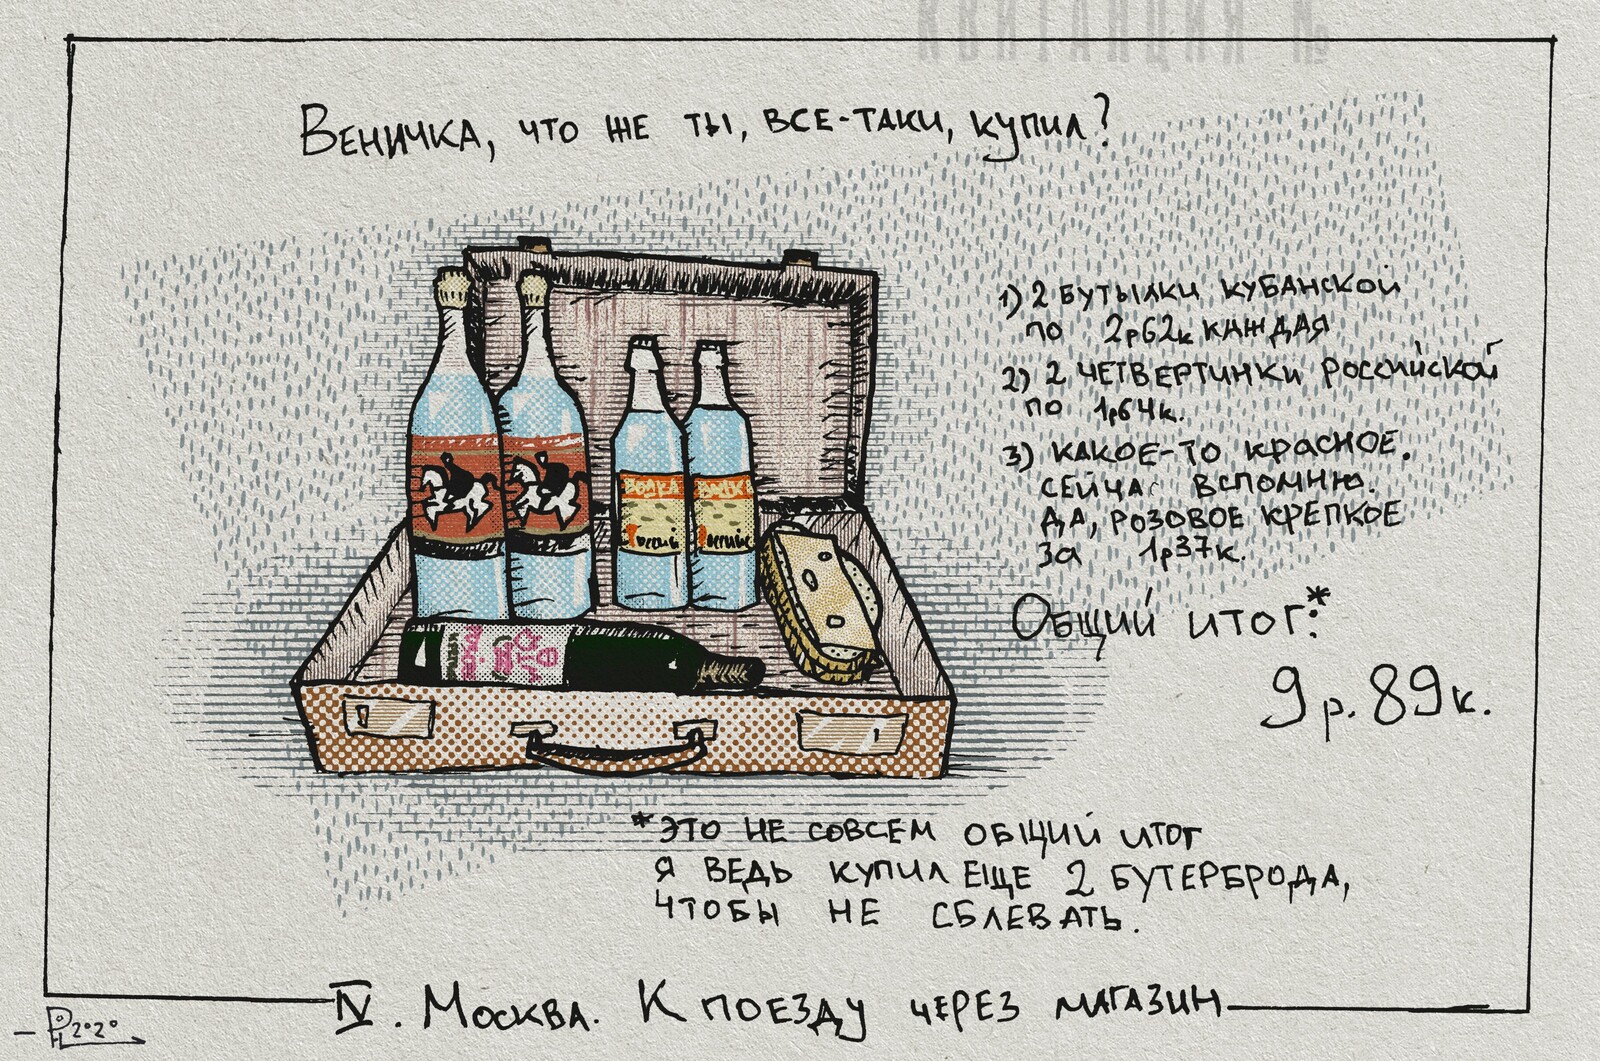 КВИТАНЦИЯ №
Веничка, что же ты, все-таки, купил?
1) 2 бутылки кубанской
по 2р62к каждая
2) 2 четвертинки российской
по 1р64к.
3) какое-то красное.
сейчас вспомню.
да, розовое крепкое
за 1р37к.
Общий итог:*
9р. 89к.
ВОДКА ВОДКА
*это не совсем общий итог
я ведь купил еще 2 бутерброда,
чтобы не сблевать.
IV. Москва. К поезду через магазин
2020